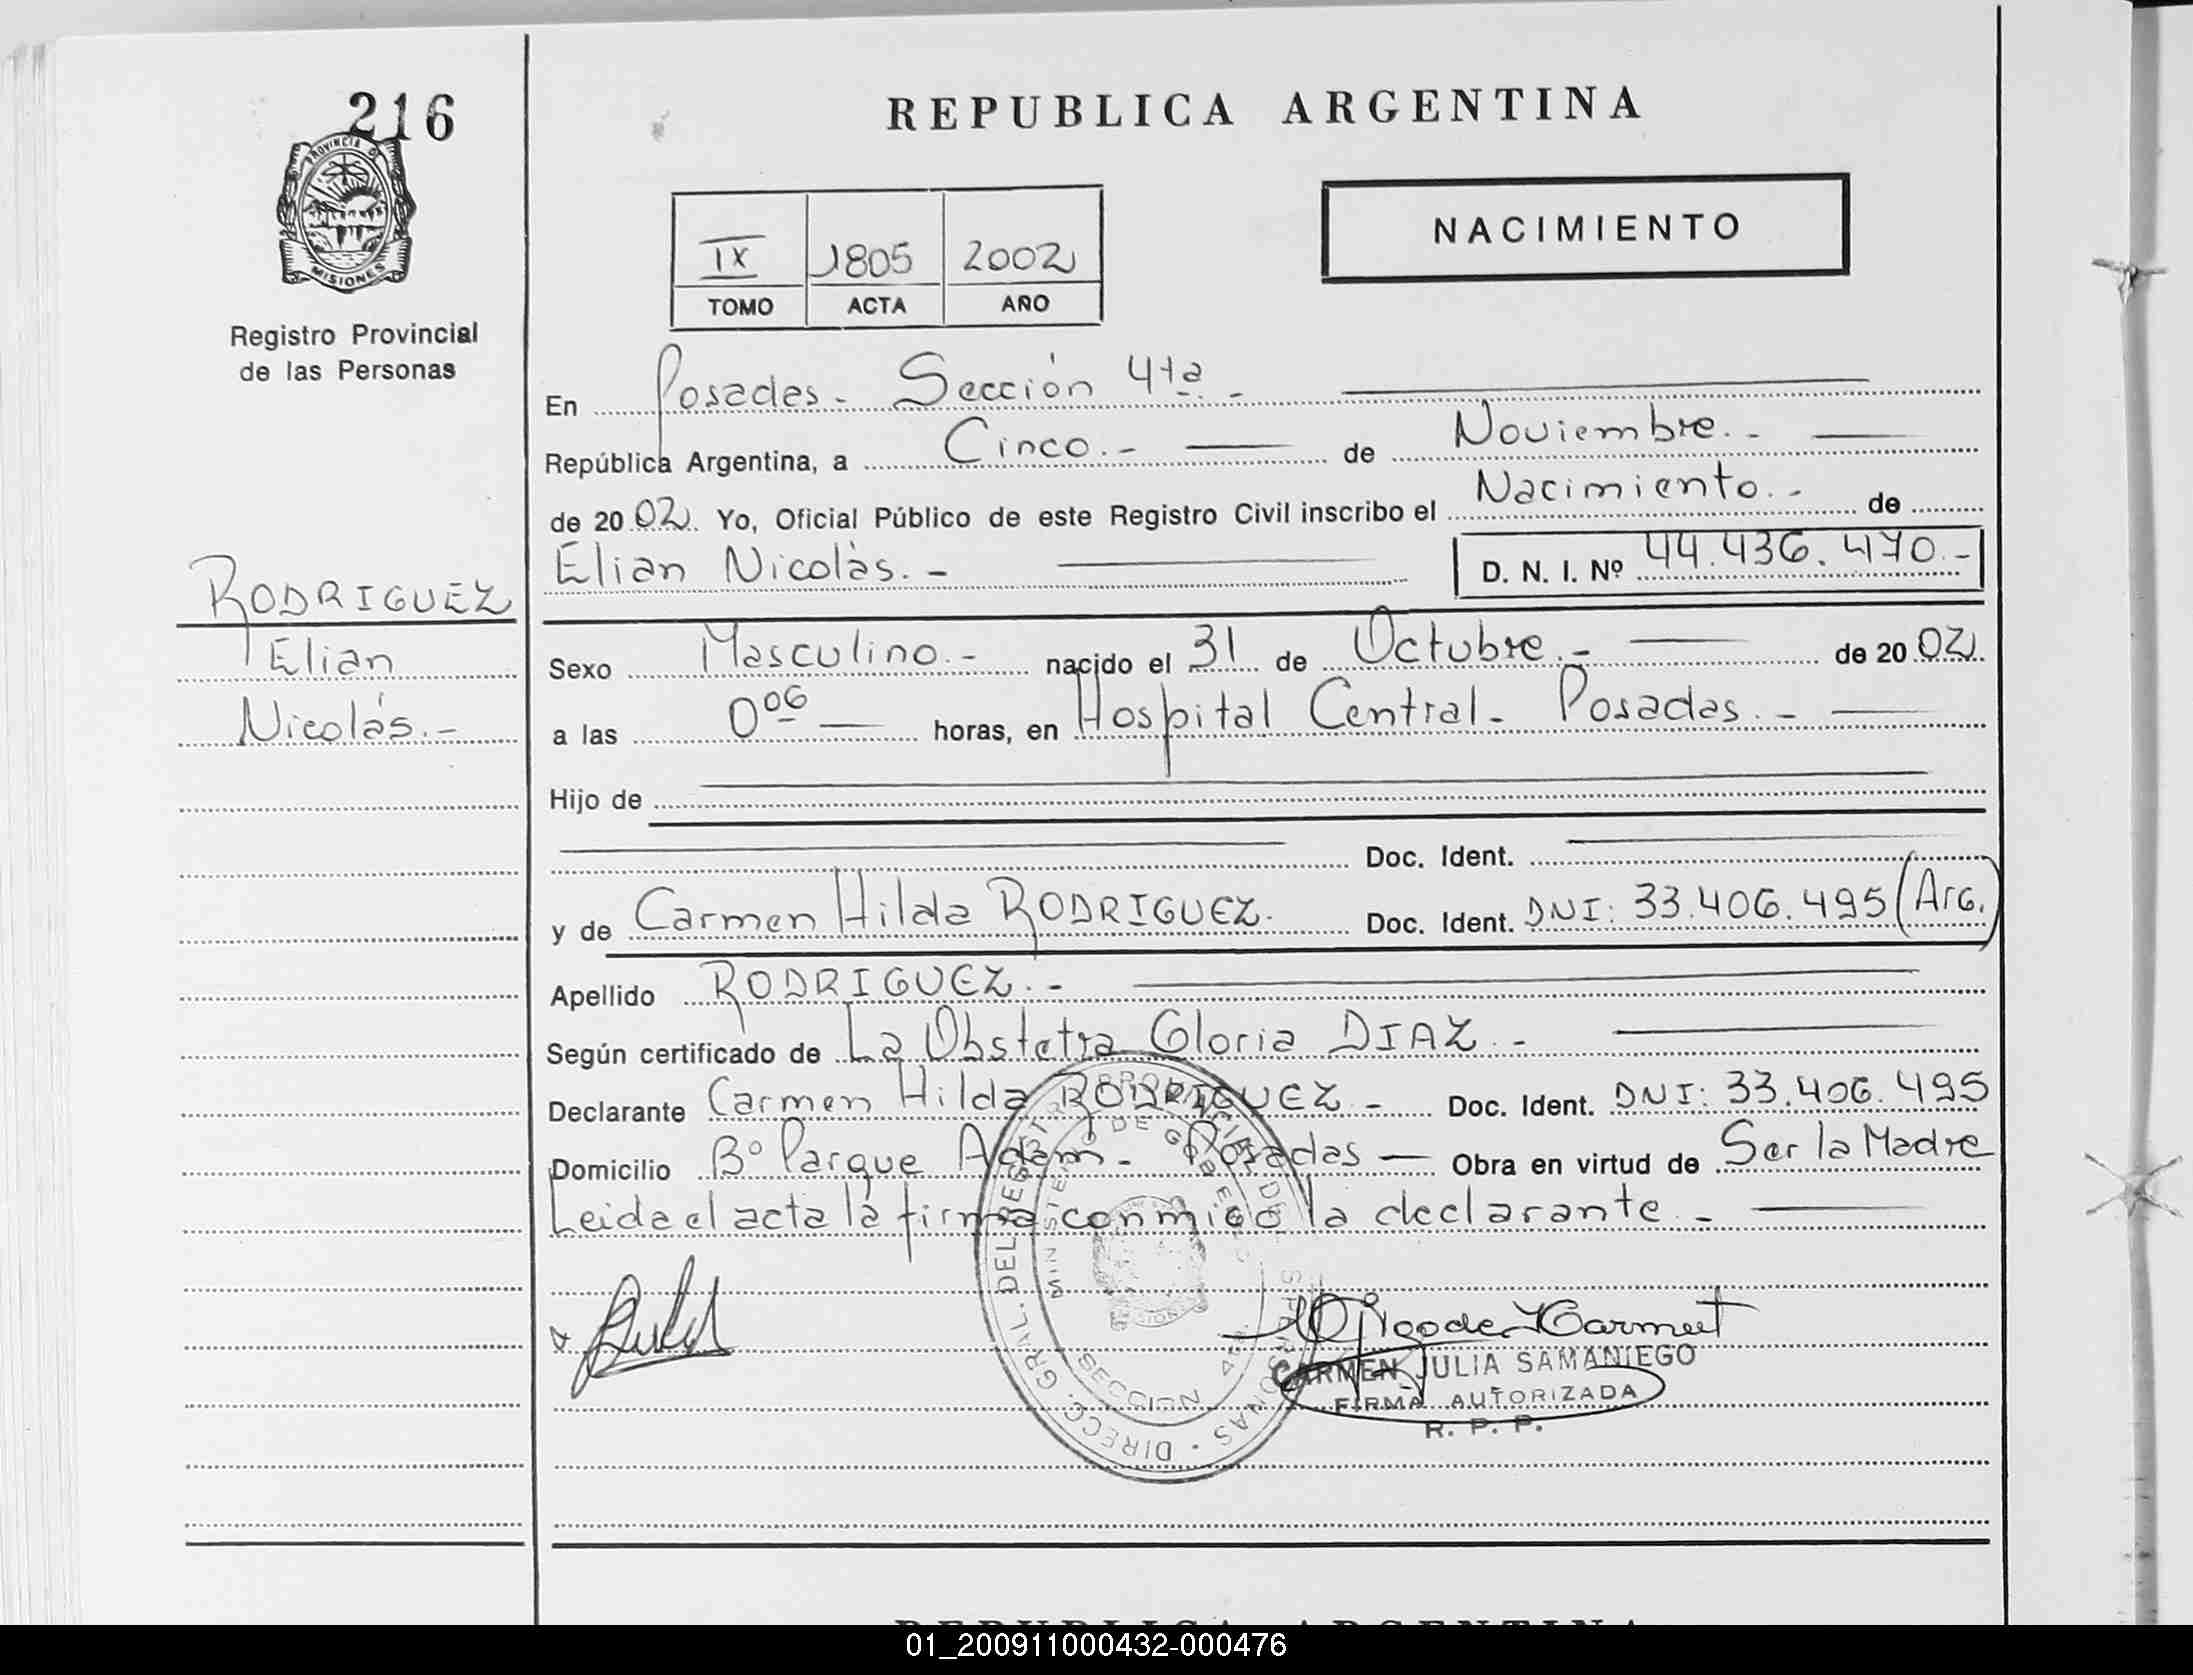 216
PROVINCIA D
MISIONES
Registro Provincial
de las Personas
RODRIGUEZ
Elian
Nicolás.-
REPUBLICA ARGENTINA
IX 1805 2002
TOMO ACTA AÑO
NACIMIENTO
En Posadas.- Sección 4ta.-
República Argentina, a Cinco.- de Noviembre.-
de 2002 Yo, Oficial Público de este Registro Civil inscribo el Nacimiento.- de
Elian Nicolás.- D. N. I. Nº 44.436.470.-
Sexo Masculino.- nacido el 31 de Octubre.- de 2002
a las 0 06 horas, en Hospital Central- Posadas.-
Hijo de
Doc. Ident.
y de Carmen Hilda RODRIGUEZ. Doc. Ident. DNI: 33.406.495 (Arg.)
Apellido RODRIGUEZ.-
Según certificado de La Obstetra Gloria DIAZ.-
Declarante Carmen Hilda RODRIGUEZ- Doc. Ident. DNI: 33.406.495
Domicilio Bº Parque Adam- Posadas- Obra en virtud de Ser la Madre
Leida el acta la firma conmigo la declarante.-
DIRECC. GRAL. DEL REGISTRO PROVINCIAL DE LAS PERSONAS
MINISTERIO DE GOBIERNO
SECCION 4ta.
CARMEN JULIA SAMANIEGO
FIRMA AUTORIZADA
R. P. P.
REPUBLICA ARGENTINA
01_200911000432-000476